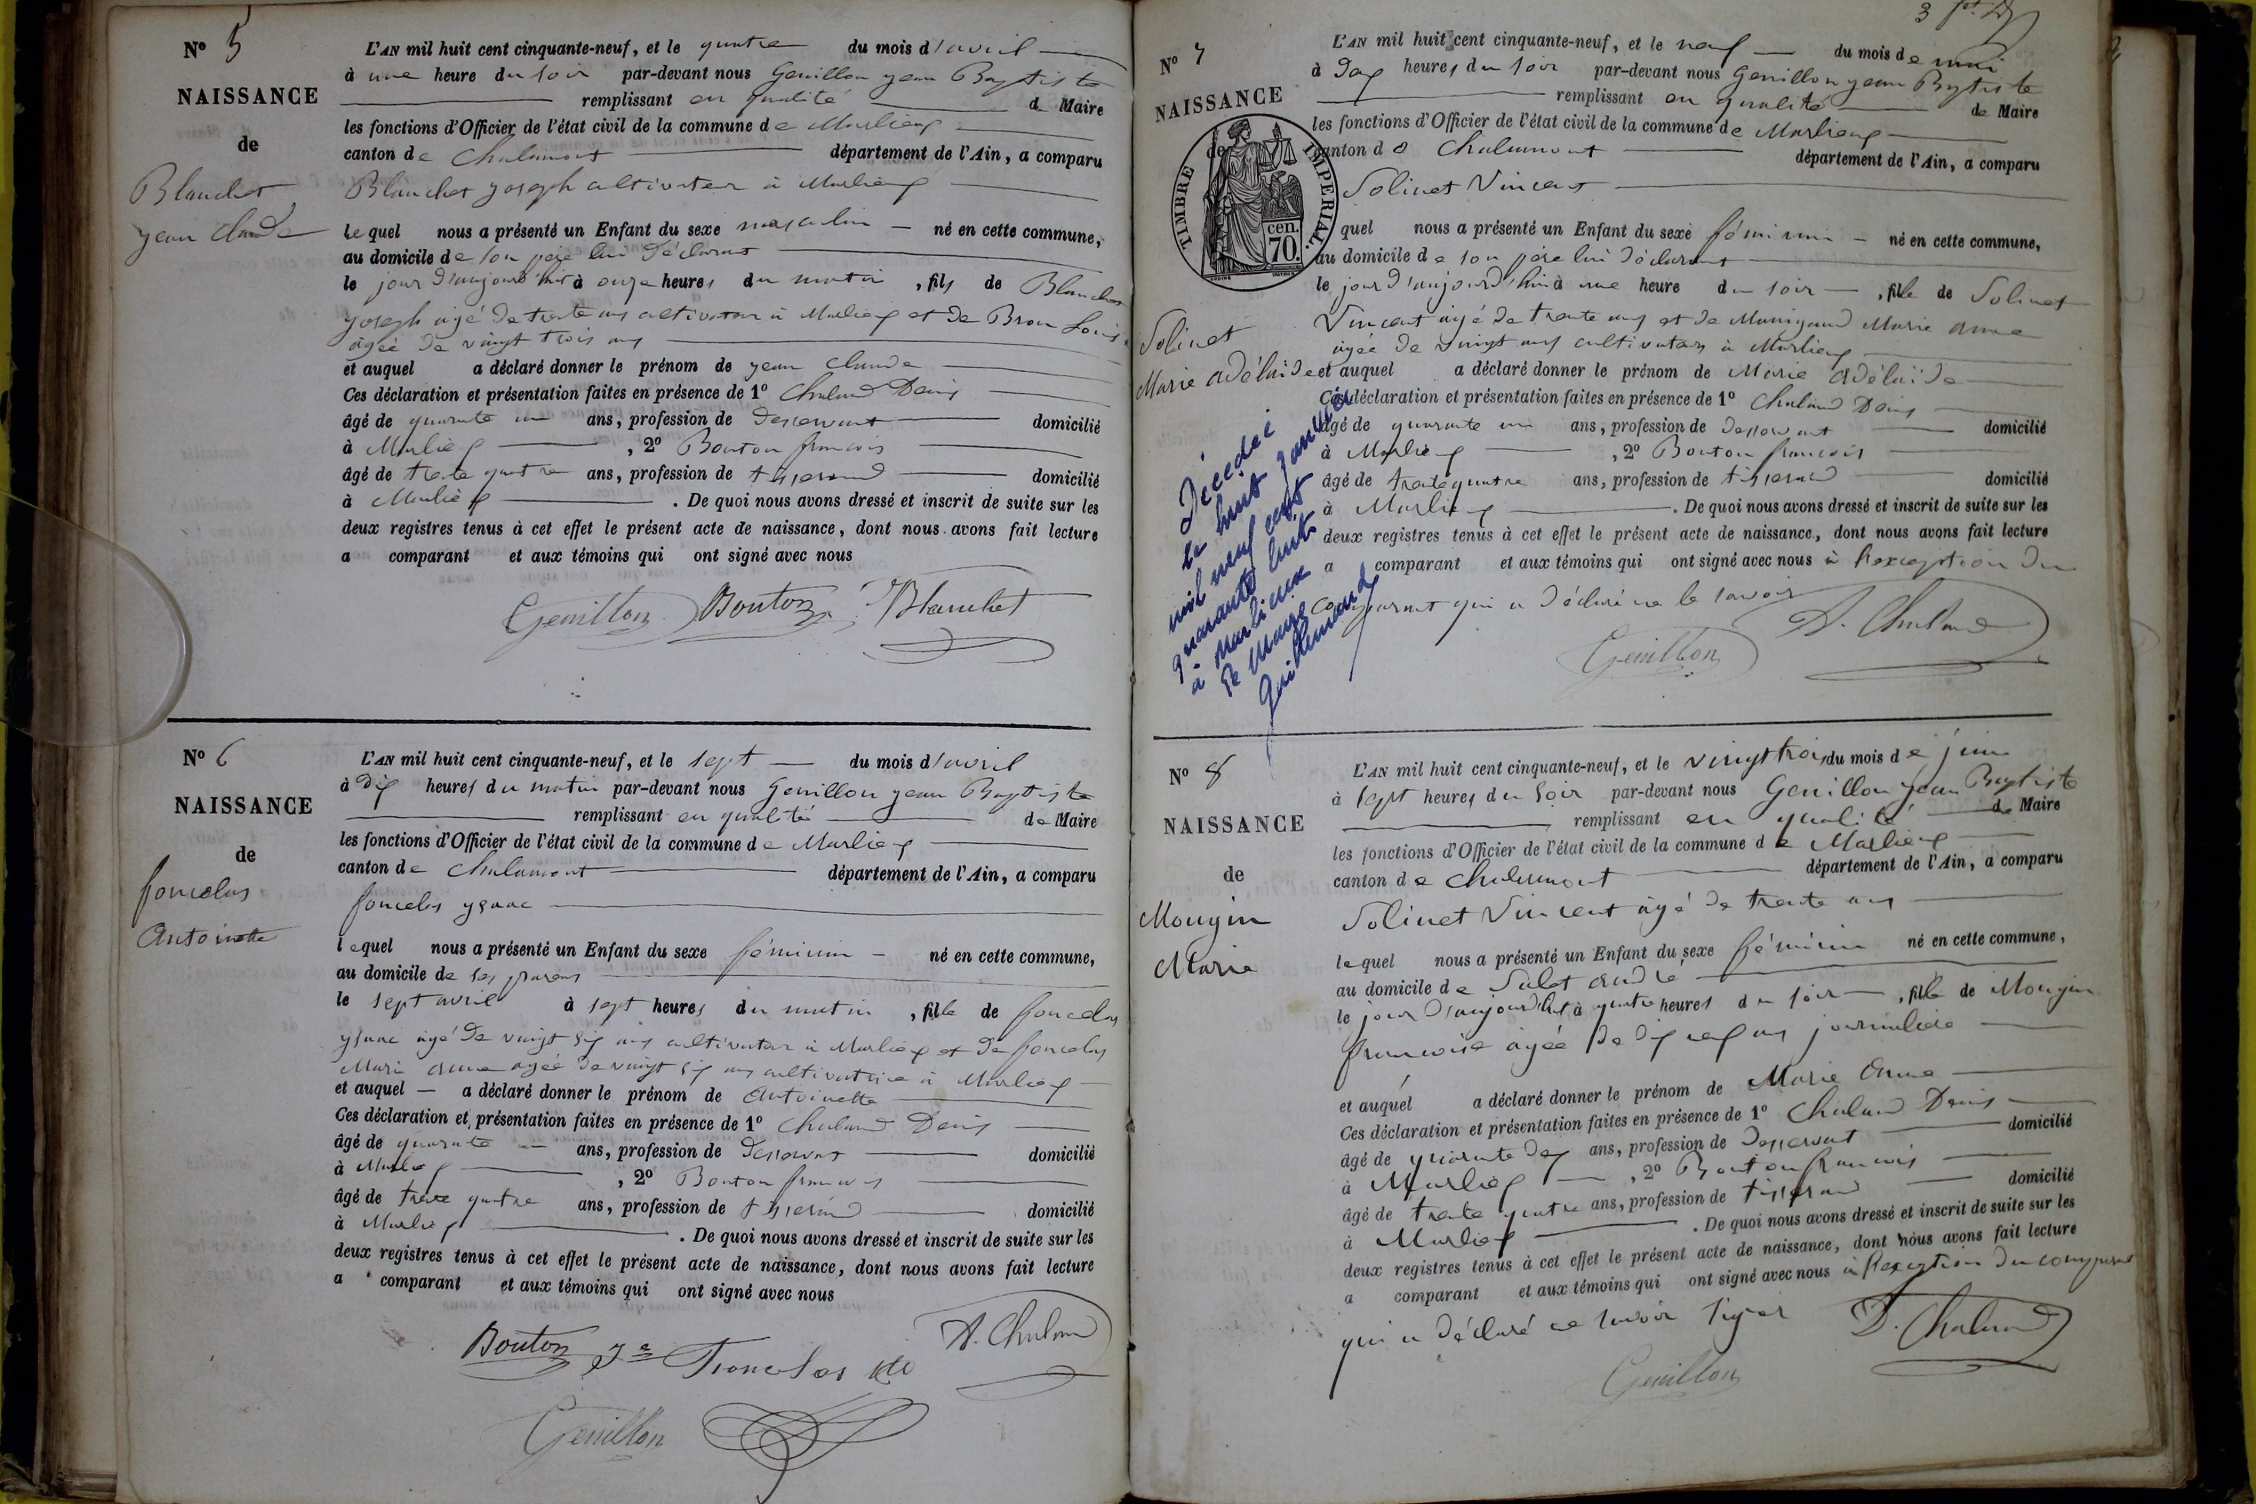 N° 5
NAISSANCE
de
Blanchet
jean claude
L'AN mil huit cent cinquante-neuf, et le quatre du mois d'avril
à une heure du soir par-devant nous Genillon jean Baptiste
remplissant en qualité de Maire
les fonctions d'Officier de l'état civil de la commune de Marlieux
canton de Chalamont département de l'Ain, a comparu
Blanchet joseph cultivateur à Marlieux
lequel nous a présenté un Enfant du sexe masculin né en cette commune,
au domicile de son père lui déclarant
le jour d'aujourd'hui à onze heures du matin, fils de Blanchet
joseph agé de trente ans cultivateur à Marlieux et de Bron Louise
agée de vingt trois ans
et auquel a déclaré donner le prénom de jean claude
Ces déclaration et présentation faites en présence de 1° Chaland Denis
âgé de quarante un ans, profession de desservant domicilié
à Marlieux, 2° Bouton francois
âgé de trente quatre ans, profession de tisserand domicilié
à Marlieux. De quoi nous avons dressé et inscrit de suite sur les
deux registres tenus à cet effet le présent acte de naissance, dont nous avons fait lecture
a comparant et aux témoins qui ont signé avec nous
Genillon Bouton Blanchet
N° 6
NAISSANCE
de
foncelas
Antoinette
L'AN mil huit cent cinquante-neuf, et le sept du mois d'avril
à dix heures du matin par-devant nous Genillon jean Baptiste
remplissant en qualité de Maire
les fonctions d'Officier de l'état civil de la commune de Marlieux
canton de Chalamont département de l'Ain, a comparu
foncelas ysaac
lequel nous a présenté un Enfant du sexe féminin né en cette commune,
au domicile de ses parens
le sept avril à sept heures du matin, fille de foncelas
ysaac agé de vingt six ans cultivateur à Marlieux et de foncelas
Marie anne agée de vingt six ans cultivatrice à Marlieux
et auquel a déclaré donner le prénom de Antoinette
Ces déclaration et présentation faites en présence de 1° Chaland Denis
âgé de quarante un ans, profession de desservant domicilié
à Marlieux, 2° Bouton francois
âgé de trente quatre ans, profession de tisserand domicilié
à Marlieux. De quoi nous avons dressé et inscrit de suite sur les
deux registres tenus à cet effet le présent acte de naissance, dont nous avons fait lecture
a comparant et aux témoins qui ont signé avec nous
Bouton D. Chaland
Genillon
3
N° 7
NAISSANCE
de
TIMBRE IMPERIAL
70 cen.
Solinet
Marie adélaïde
L'AN mil huit cent cinquante-neuf, et le neuf du mois de mai
à dex heures du soir par-devant nous Genillon jean Baptiste
remplissant en qualité de Maire
les fonctions d'Officier de l'état civil de la commune de Marlieux
canton de Chalamont département de l'Ain, a comparu
Solinet Vincent
quel nous a présenté un Enfant du sexe féminin né en cette commune,
au domicile de son père lui déclarant
le jour d'aujourd'hui à une heure du soir, fille de Solinet
Vincent agé de trente ans et de Manigand Marie anne
agée de vingt ans cultivateurs à Marlieux
et auquel a déclaré donner le prénom de Marie adélaïde
Ces déclaration et présentation faites en présence de 1° Chaland Denis
âgé de quarante un ans, profession de desservant domicilié
à Marlieux, 2° Bouton francois
âgé de trente quatre ans, profession de tisserand domicilié
à Marlieux. De quoi nous avons dressé et inscrit de suite sur les
deux registres tenus à cet effet le présent acte de naissance, dont nous avons fait lecture
a comparant et aux témoins qui ont signé avec nous à l'exception du
comparant qui a déclaré ne le savoir
Genillon D. Chaland
Décédée
le huit janvier
mil neuf cent
quarante huit
à Marlieux
Le Maire
Guillemaud
N° 8
NAISSANCE
de
Mougin
Marie
L'AN mil huit cent cinquante-neuf, et le vingt trois du mois de juin
à sept heures du soir par-devant nous Genillon jean Baptiste
remplissant en qualité de Maire
les fonctions d'Officier de l'état civil de la commune de Marlieux
canton de Chalamont département de l'Ain, a comparu
Solinet Vincent agé de trente ans
lequel nous a présenté un Enfant du sexe féminin né en cette commune,
au domicile de Salet andré
le jour d'aujourd'hui à quatre heures du soir, fille de Mougin
francoise agée de dix neuf ans journalière
et auquel a déclaré donner le prénom de Marie Anne
Ces déclaration et présentation faites en présence de 1° Chaland Denis
âgé de quarante dex ans, profession de desservant domicilié
à Marlieux, 2° Bouton francois
âgé de trente quatre ans, profession de tisserand domicilié
à Marlieux. De quoi nous avons dressé et inscrit de suite sur les
deux registres tenus à cet effet le présent acte de naissance, dont nous avons fait lecture
a comparant et aux témoins qui ont signé avec nous à l'exception du comparant
qui a déclaré ne savoir signer D. Chaland
Genillon